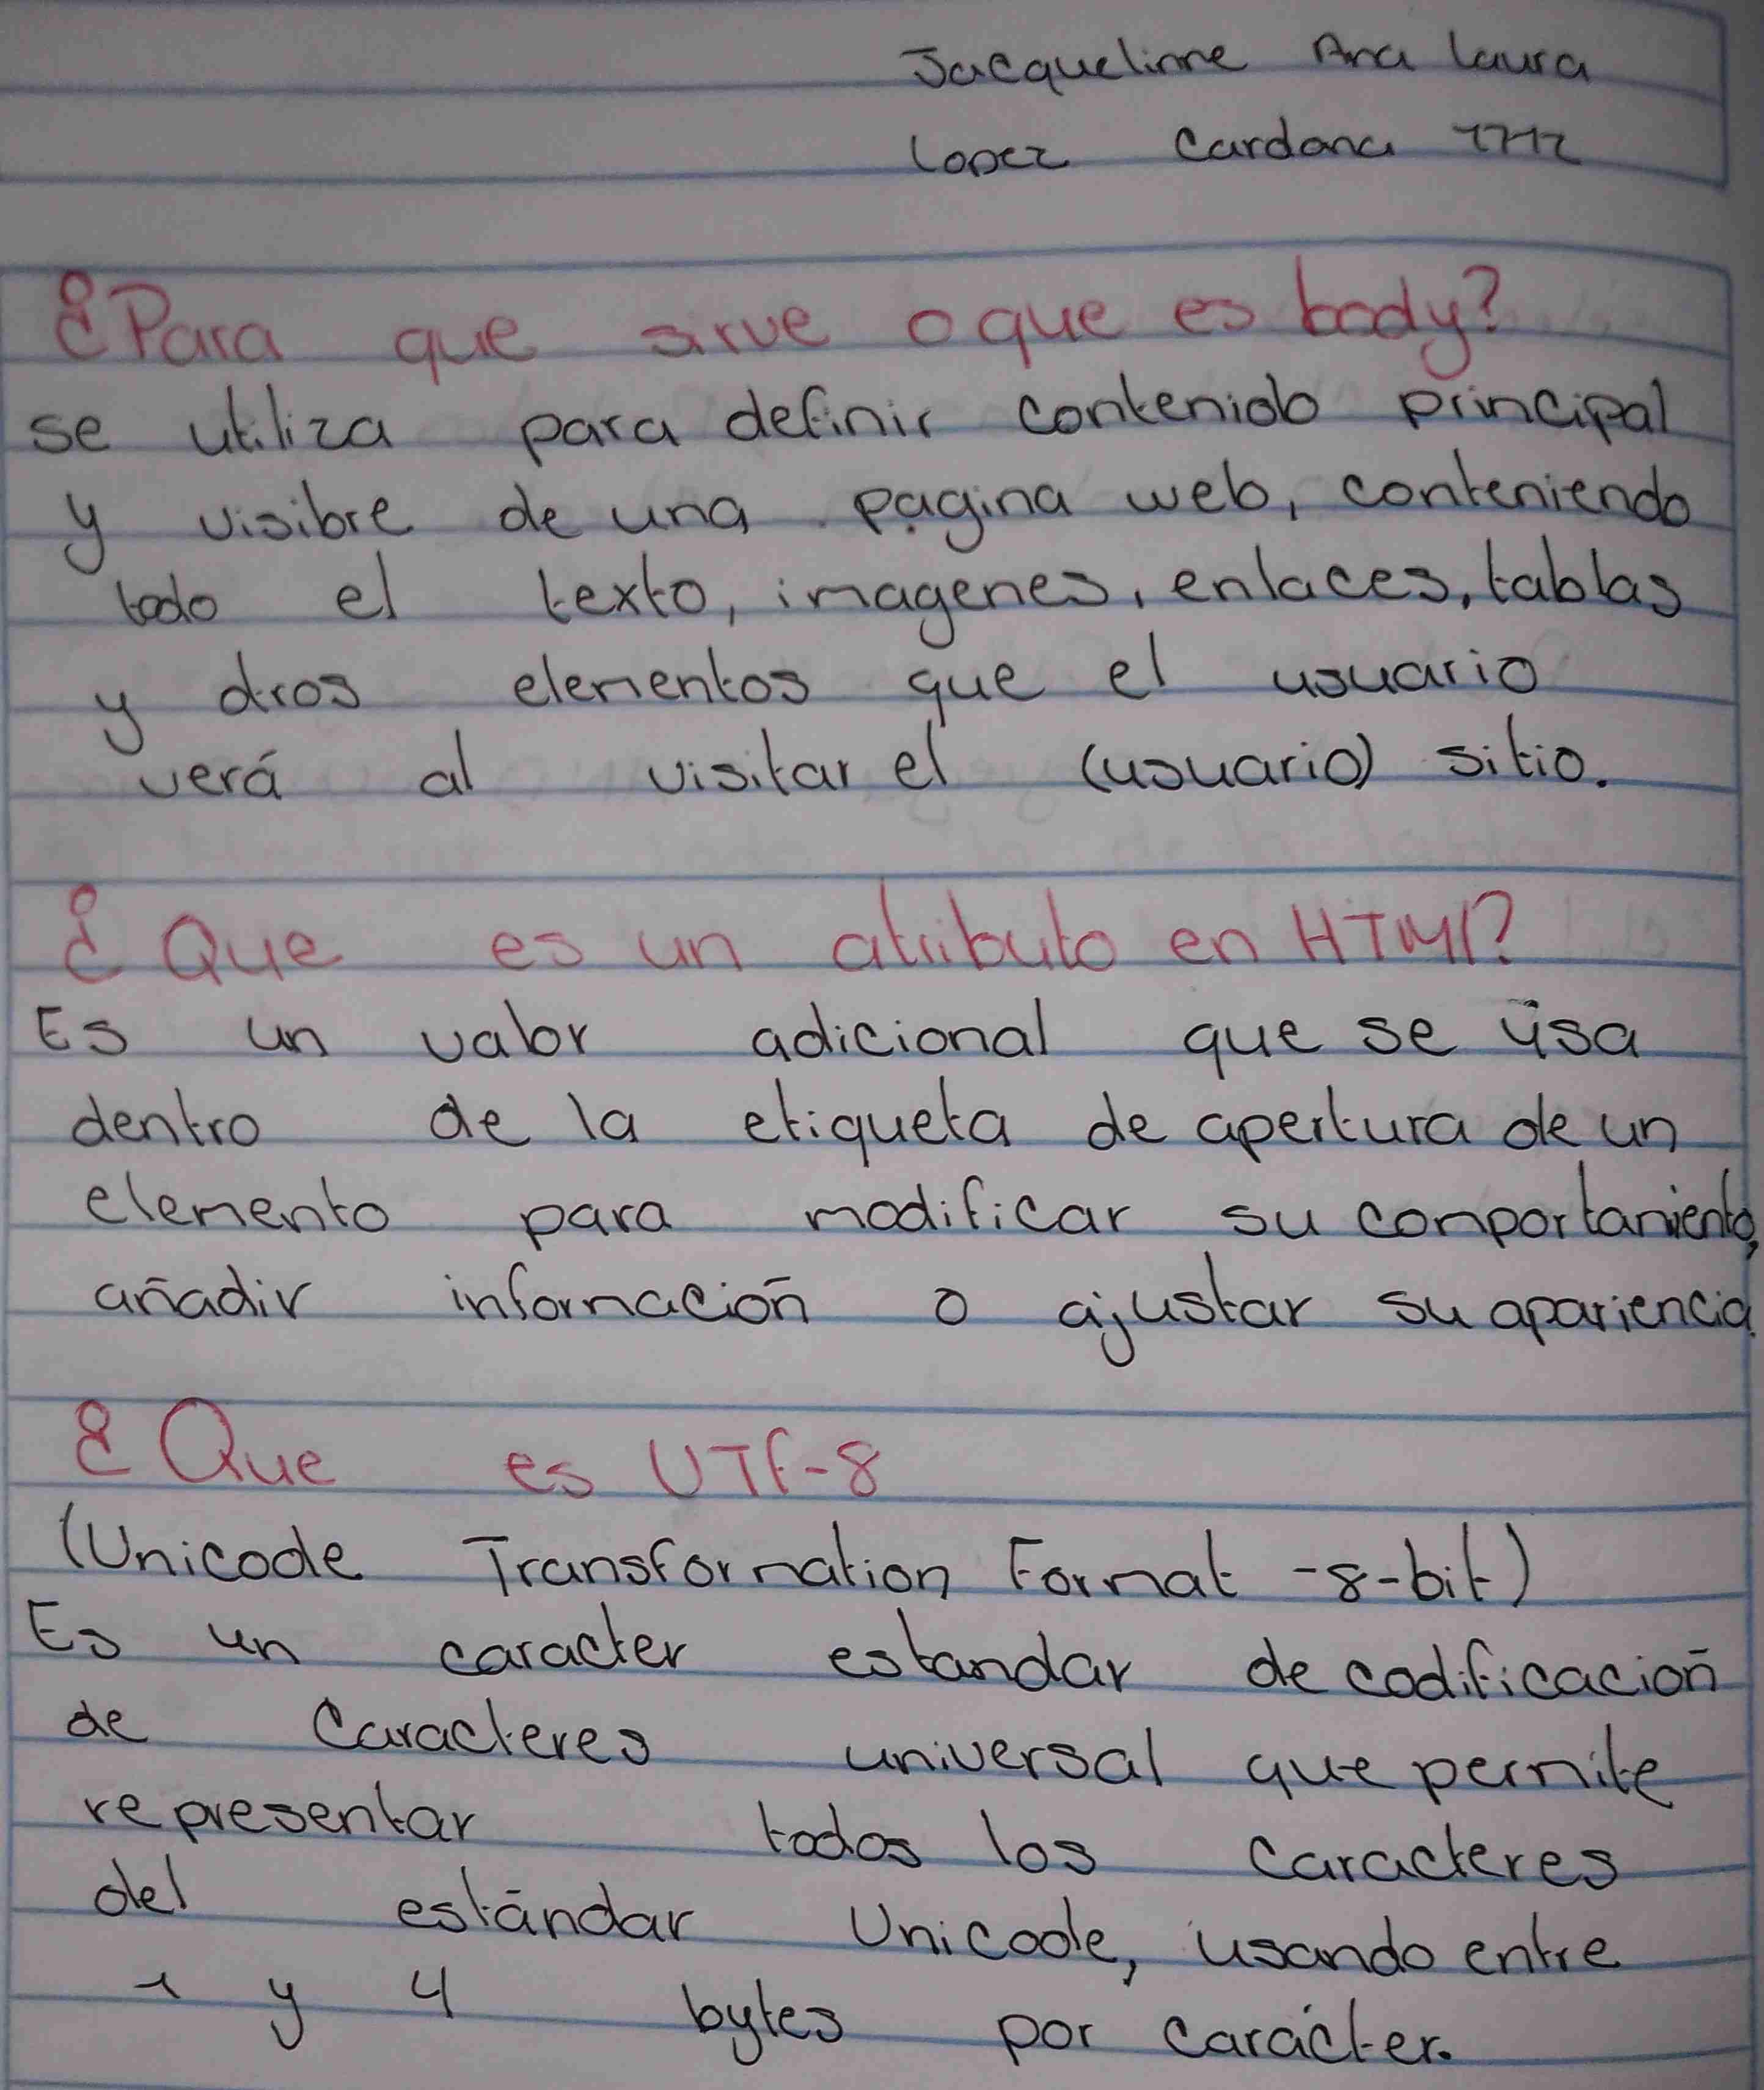 Jacquelinne Ana Laura
Lopez Cardona
¿Para que sirve o que es body?
se utiliza para definir contenido principal
y visibre de una pagina web, conteniendo
todo el texto, imagenes, enlaces, tablas
y otros elementos que el usuario
verá al visitar el (usuario) sitio.
¿Que es un atributo en HTMl?
Es un valor adicional que se usa
dentro de la etiqueta de apertura de un
elemento para modificar su comportamiento,
añadir información o ajustar su apariencia.
¿Que es UTf-8
(Unicode Transformation Format -8-bit)
Es un caracter estandar de codificación
de Caracteres universal que permite
representar todos los caracteres
del estándar Unicode, usando entre
1 y 4 bytes por carácter.